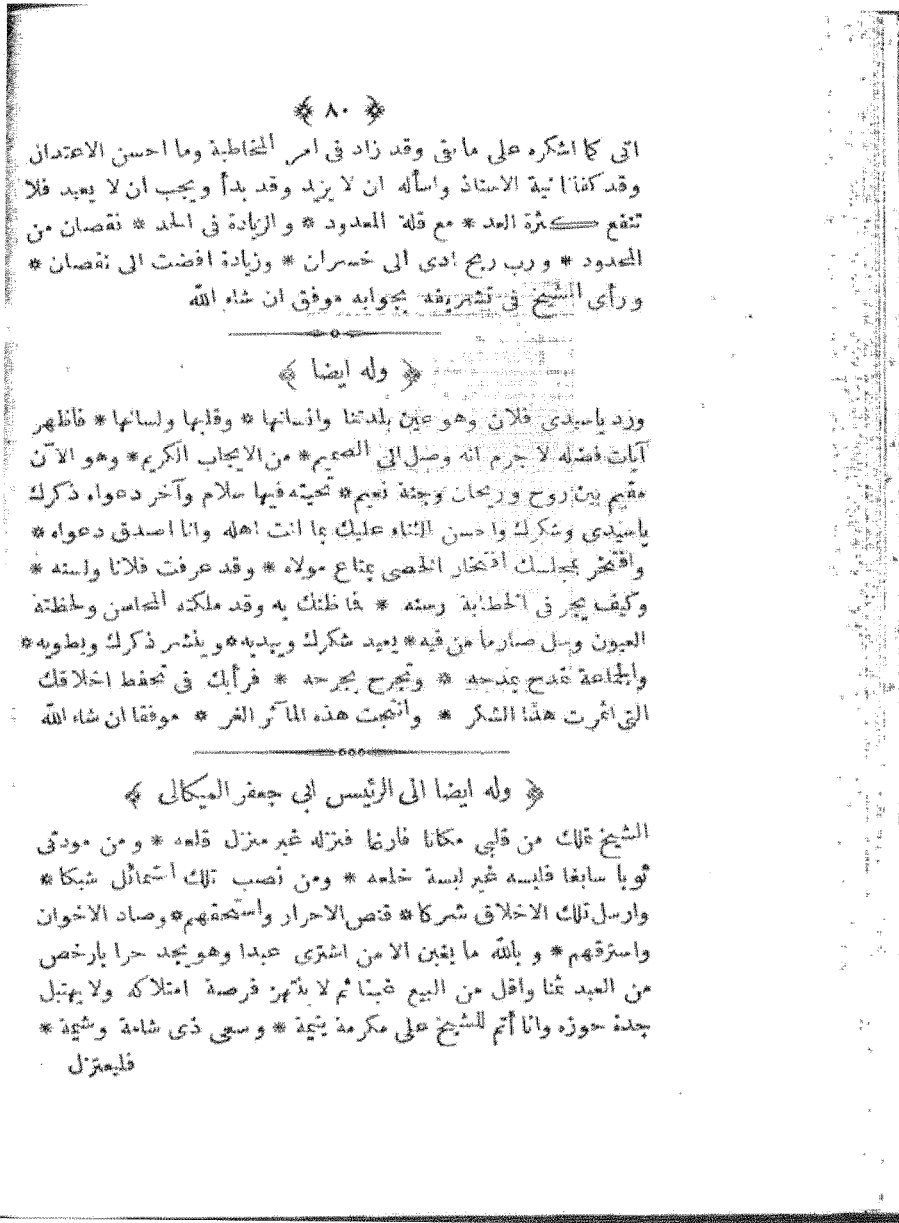 ﴿ ٨٠ ﴾
انى كما اشكره على ما بقى وقد زاد فى امر المخاطبة وما احسن الاعتدال
وقد كفانا نية الاستاذ واسأله ان لا يزيد وقد بدأ ويجب ان لا يعيد فلا
تنفع كثرة العد * مع قلة المعدود * والزيادة فى الحد * نقصان من
المحدود * ورب ربح ادى الى خسران * وزيادة افضت الى نقصان *
ورأى الشيخ فى تشريفه بجوابه موفق ان شاء الله
﴿ وله ايضا ﴾
ورد ياسيدى فلان وهو عين بلدتنا وانسانها * وقلبها ولسانها * فاظهر
آيات فضله لا جرم انه وصل الى الصميم * من الايجاب الكريم * وهو الآن
مقيم بين روح وريحان وجنة نعيم * تحيته فيها سلام وآخر دعواه ذكرك
ياسيدى وشكرك واحسن الثناء عليك بما انت اهله وانا اصدق دعواه *
وافتخر بمجلسك افتخار الخصى بمتاع مولاه * وقد عرفت فلانا ولسنه *
وكيف يجر فى الخطابة رسنه * فا ظنك به وقد ملكته المحاسن ولحظته
العيون وسل صارما من فيه * يعيد شكرك ويبديه * وينشر ذكرك ويطويه *
والجماعة تمدح بمدحه * وتجرح بجرحه * فرأيك فى تحفظ اخلاقك
التى اثمرت هذا الشكر * وانتجت هذه المآثر الغر * موفقا ان شاء الله
﴿ وله ايضا الى الرئيس ابى جعفر الميكالى ﴾
الشيخ ملك من قلبى مكانا فارغا فنزله غير منزل قلعه * ومن مودتى
ثوبا سابغا فلبسه غير لبسة خلعه * ومن نصب تلك الشمائل شبكا *
وارسل تلك الاخلاق شركا * قنص الاحرار واستحقهم * وصاد الاخوان
واسترقهم * وبالله ما يغبن الا من اشترى عبدا وهو يجد حرا بارخص
من العبد ثمنا واقل من البيع غبنا ثم لا ينتهز فرصة امتلاكه ولا يهتبل
جدة حوزه وانا أنم للشيخ على مكرمة يتيمة * وسعى ذى شامة وشيمة *
فليعتزل